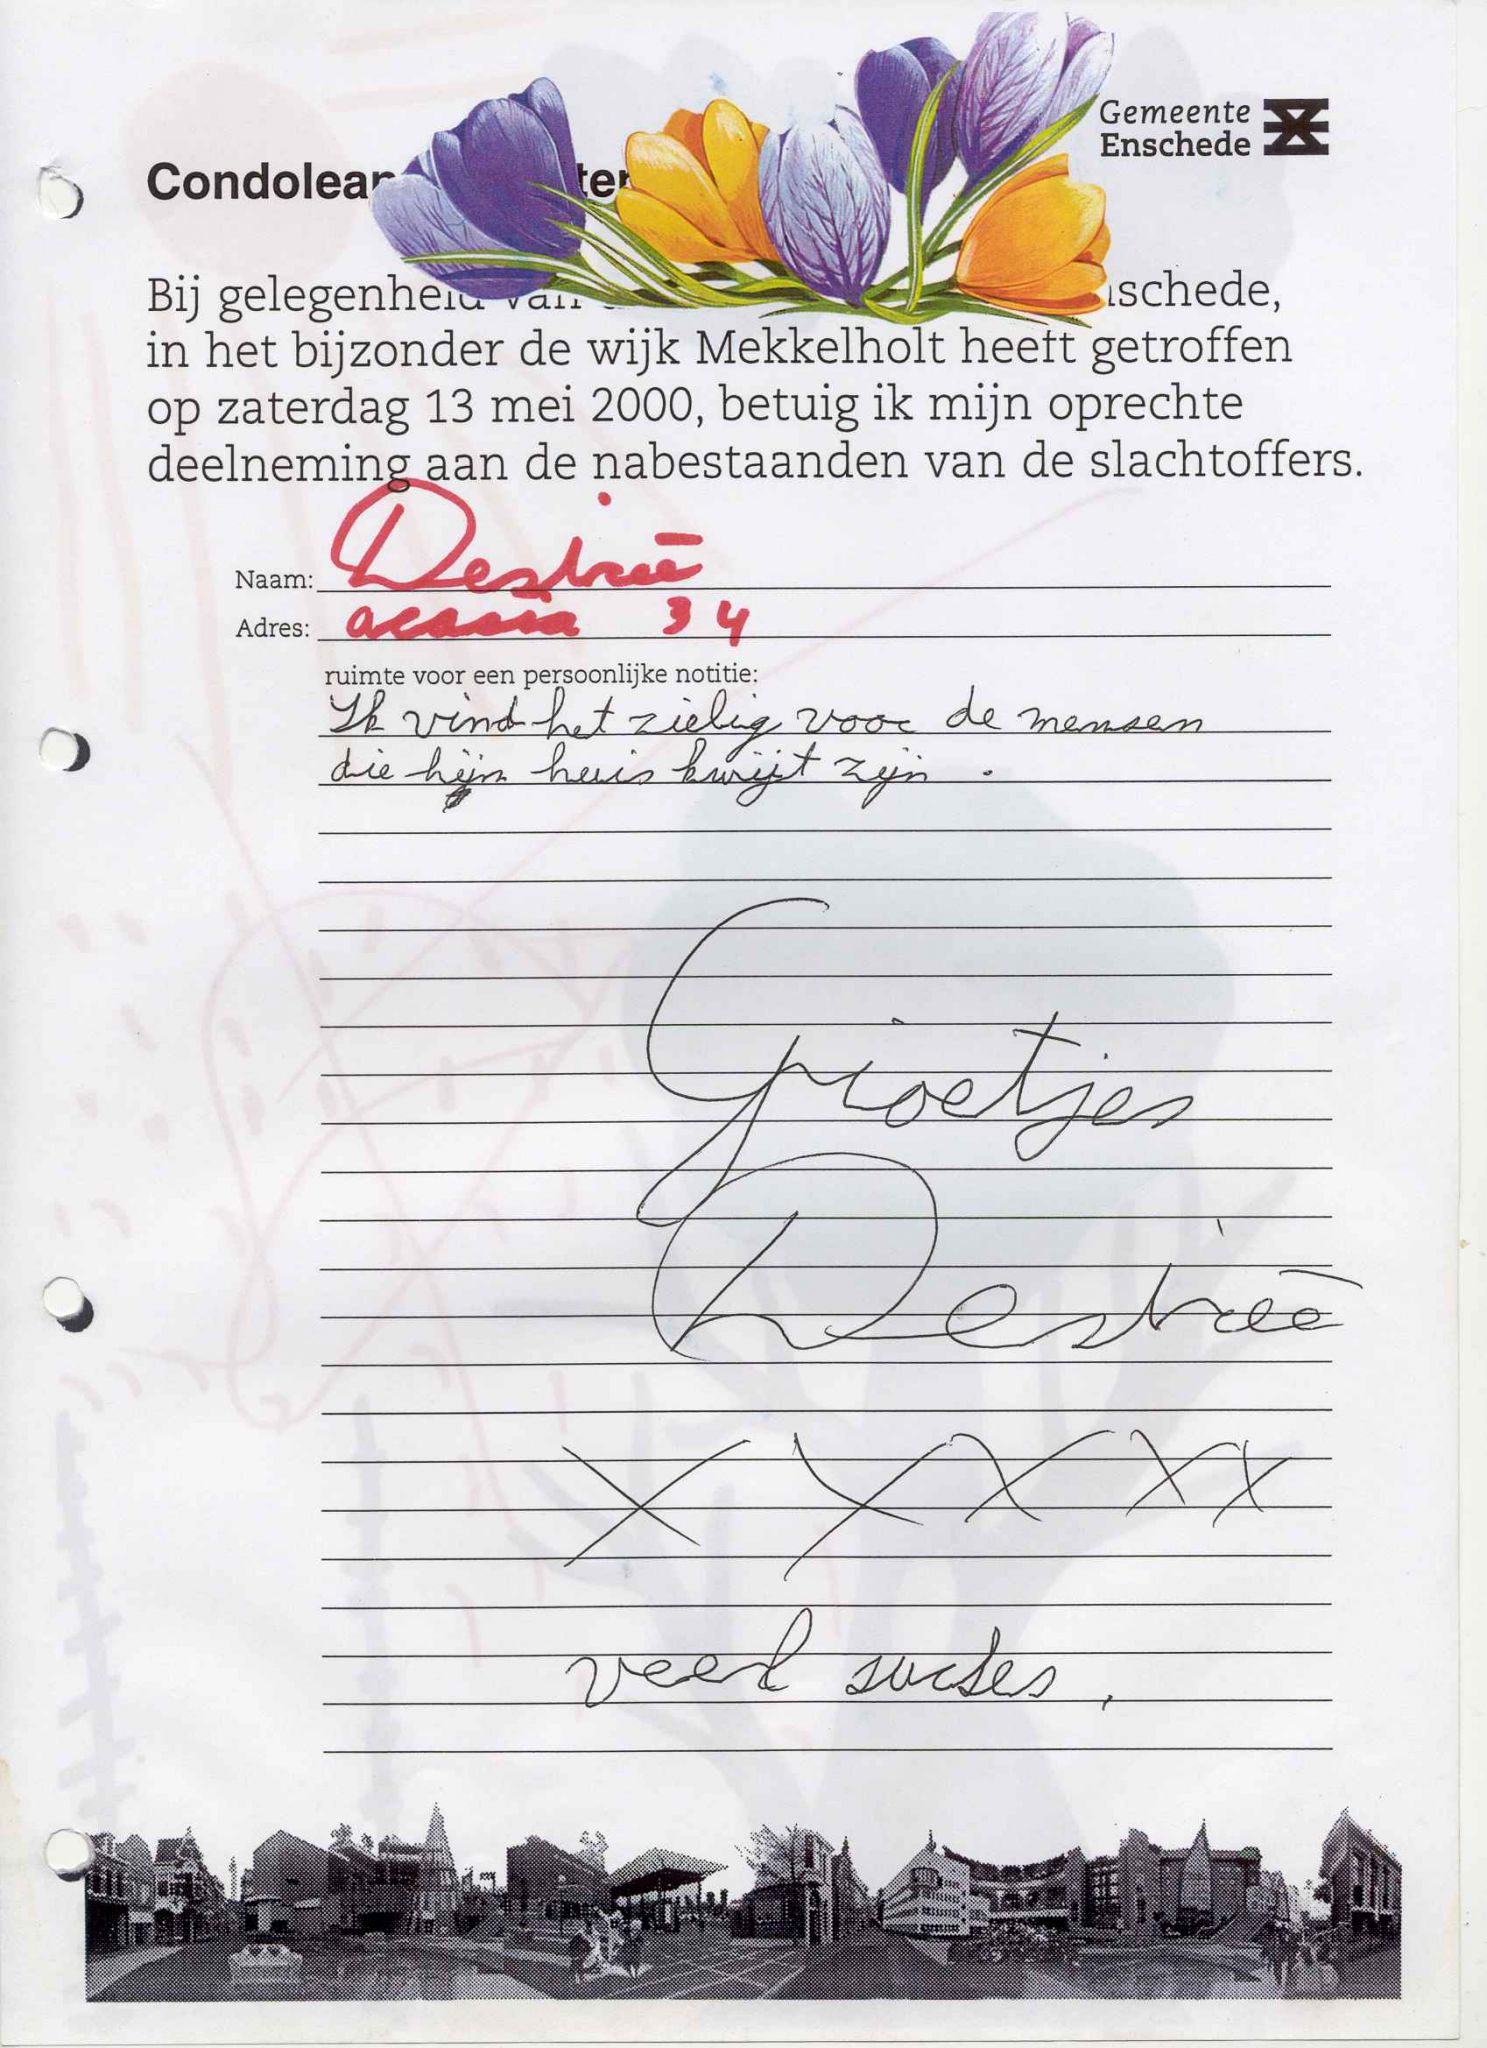 Gemeente
Enschede
Condolean ter
Bij gelegenheid van schede,
in het bijzonder de wijk Mekkelholt heeft getroffen
op zaterdag 13 mei 2000, betuig ik mijn oprechte
deelneming aan de nabestaanden van de slachtoffers.
Naam: Desireē
Adres: acasia 34
ruimte voor een persoonlijke notitie:
Ik vind het zielig voor de mensen
die hijn huis kwijt zijn.
Groetjes
Desireē
X X X X X
veel sucses.